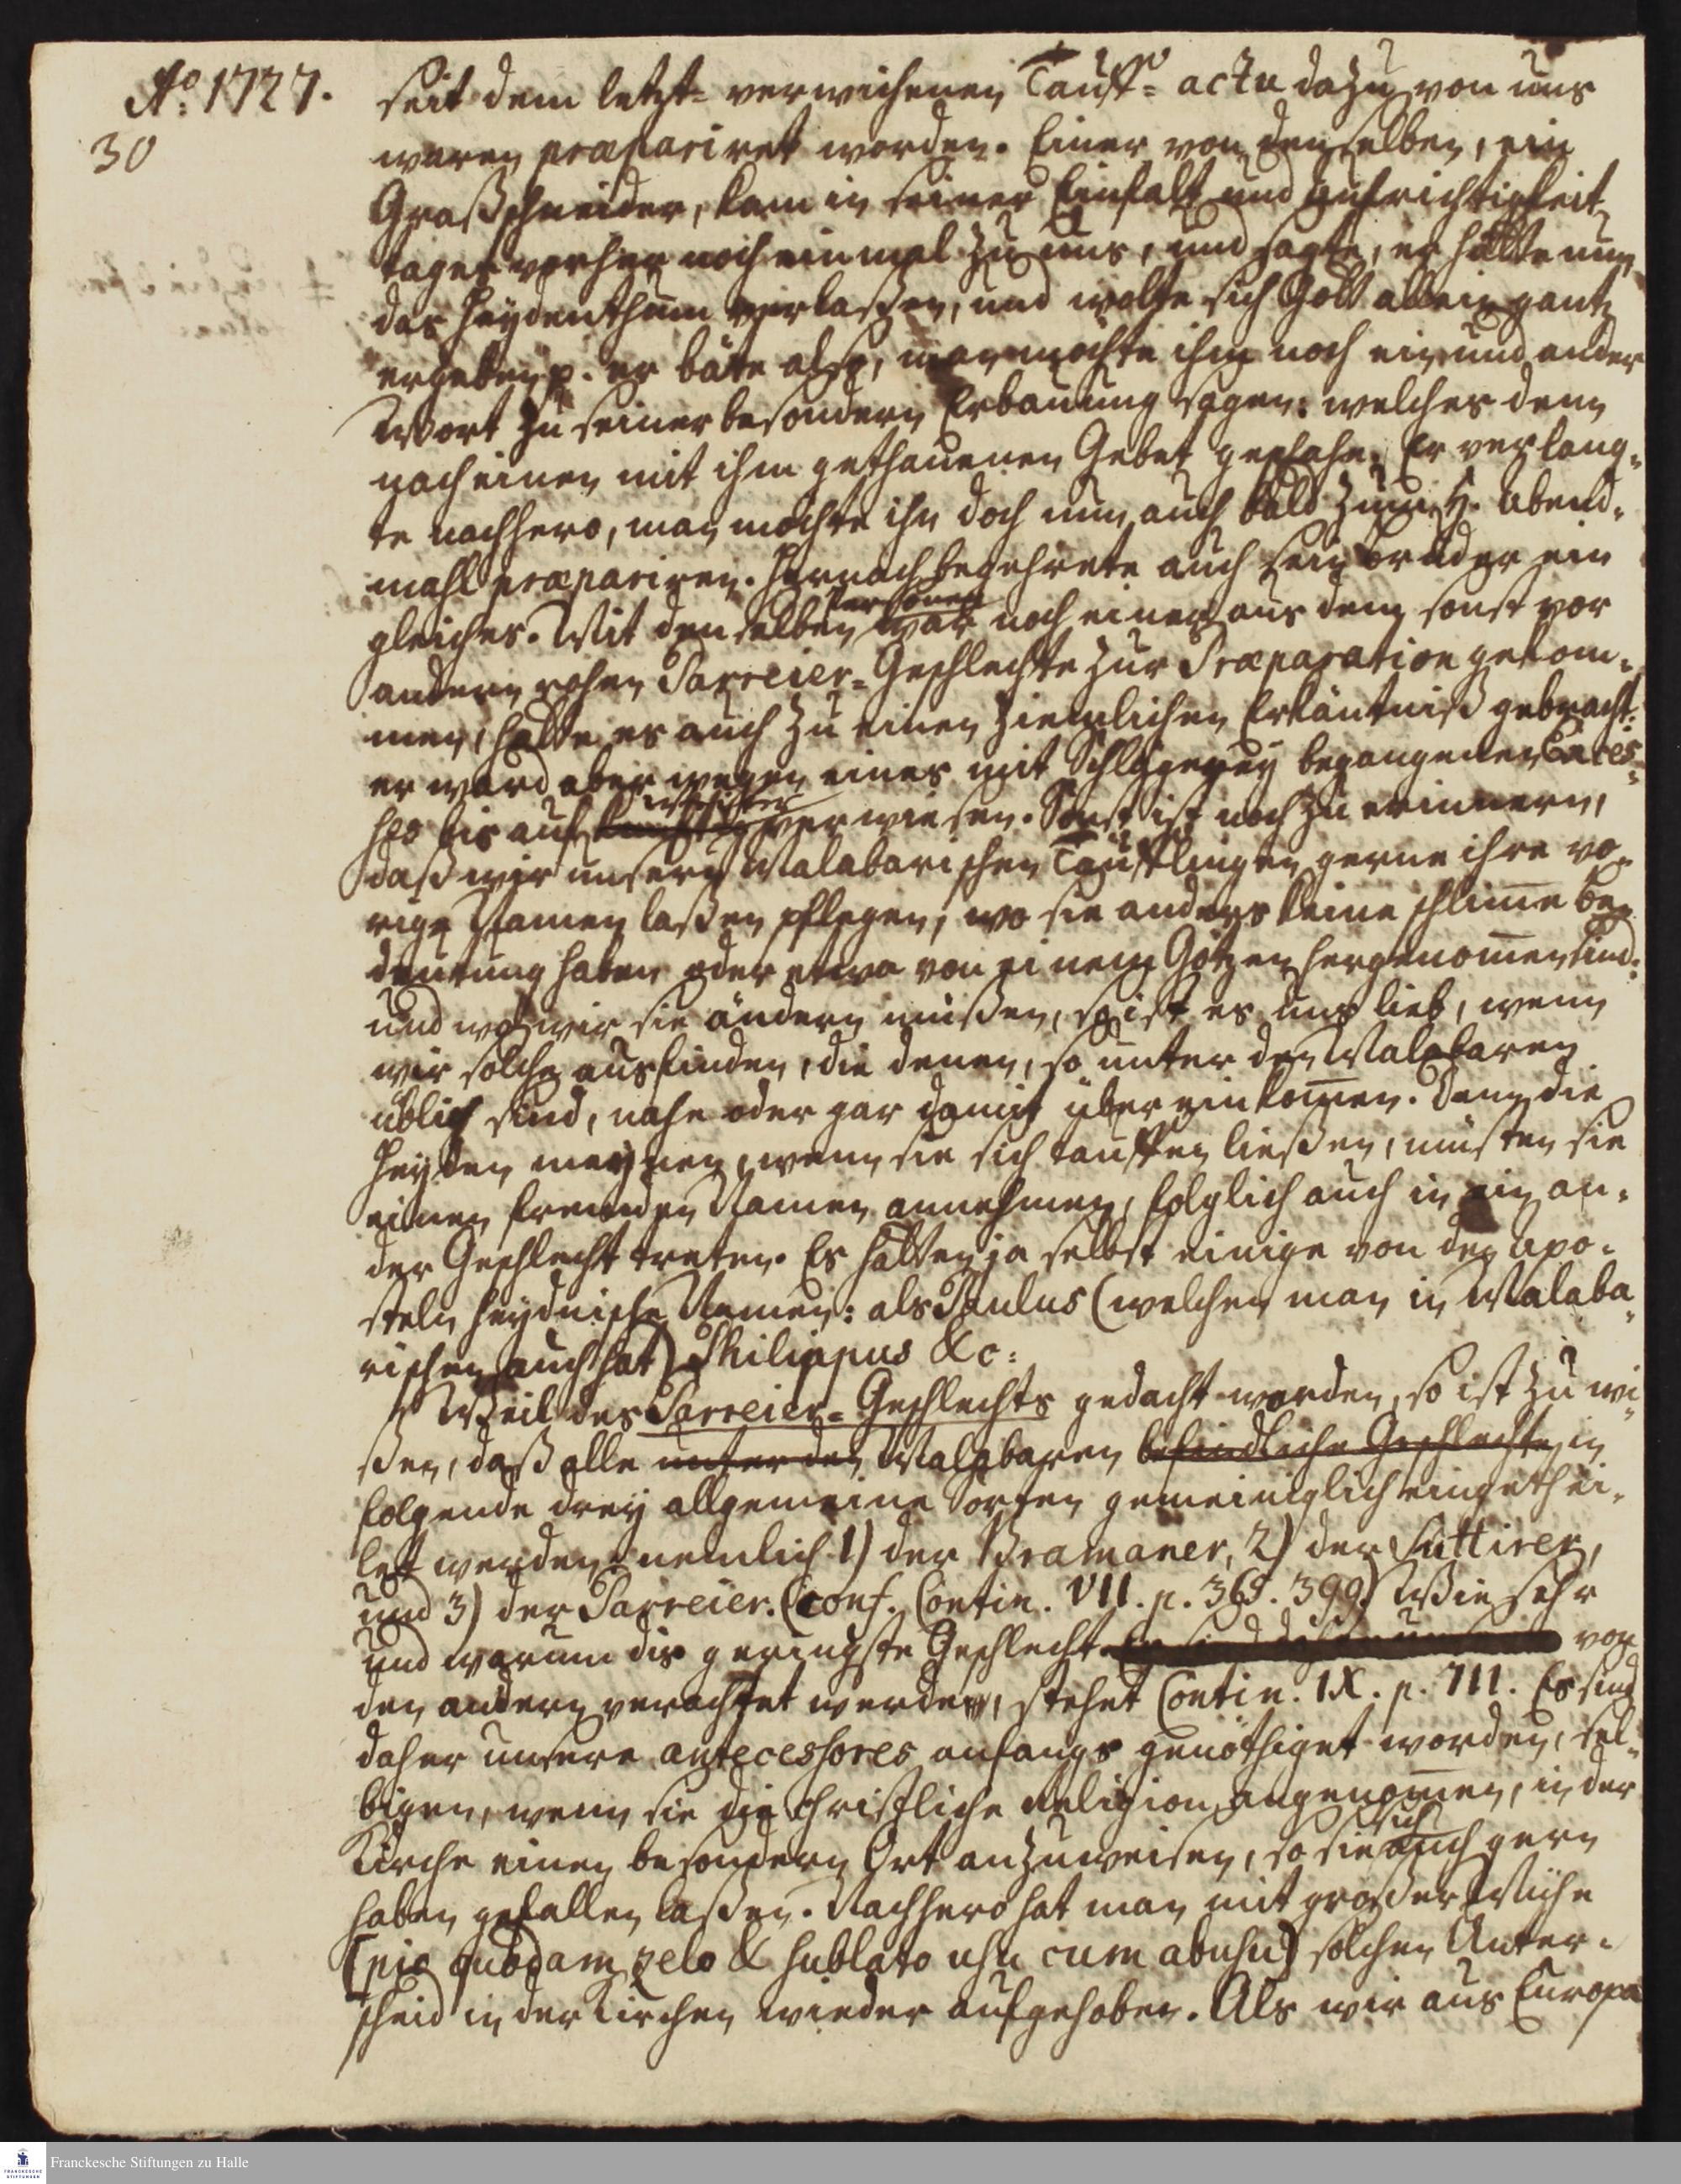 Aō. 1727.
30
seit dem letzt- verwichenen Tauff- actu dazu von uns
waren præpariret worden. Einer von denselben, ein
Graßschneider, kam in seiner Einfalt und Aufrichtigkeit
tages vorher noch einmal zu uns, und sagte, er hätte nun
das Heydenthum verlaßen, und wolte sich Gott allein gantz
ergeben p. er bäte also, man möchte ihm noch ein und ander
Wort zu seiner besondern Erbauung sagen: welches denn
nach einen mit ihm gethanenen Gebet geschahe. Er verlang-
te nachhero, man möchte ihn doch nun auch bald zum H. Abend-
mahl præpariren. Hernach begehrete auch sein Bruder ein
gleiches. Mit denselben
war noch einer aus dem sonst vor
andern rohen Parreier-Geschlechte zur Præparation gekom-
men, hatte es auch zu einen ziemlichen Erkäntniß gebracht:
er ward aber wegen eines mit Schlägerey begangenen Exces-
ses bis auf
verwiesen. Sonst ist noch zu erinnern,
daß wir unsern Malabarischen Täufflingen gerne ihre vo-
rige Namen laßen pflegen, wo sie anders keine schlim̄e Be-
deutung haben oder etwa von einem Götzen hergenom̄en sind:
und wo wir sie ändern müßen, so ist es uns lieb, wenn
wir solche ausfinden, die denen, so unter den Malabaren
üblich sind, nahe oder gar damit übereinkom̄en. Denn die
Heyden meynen, wenn sie sich tauffen ließen, müsten sie
einen fremden Namen annehmen, folglich auch in ein an-
der Geschlecht treten. Es hatten ja selbst einige von den Apo-
steln heydnische Namen: als Paulus (welchen man in Malaba-
rischen auch hat) Philippus &c:
Weil des Parreier-Geschlechts gedacht worden, so ist zu wi-
ßen, daß alle unter den Malabaren befindliche Geschlechte in
folgende drey allgemeine Sorten gemeiniglich eingethei-
let werden, nemlich 1) der Bramaner, 2) der Suttirer,
und 3) der Parreier. (conf. Contin. VII. p. 365. 399.) Wie sehr
und warum dis geringste Geschlecht von
den andern verachtet werden, stehet Contin. IX. p. 711. Es sind
daher unsere antecessores anfangs genöthiget worden, sel-
bigen, wenn sie die Christliche Religion angenom̄en, in der
Kirche einen besondern Ort anzuweisen, so sie
sich
auch gern
haben gefallen laßen. Nachhero hat man mit großer Mühe
(pio quodam zelo & sublato usu cum abusu) solchen Unter-
scheid in der Kirchen wieder aufgehoben. Als wir aus Europa
Franckesche Stiftungen zu Halle
FRANCKESCHE
STIFTUNGEN